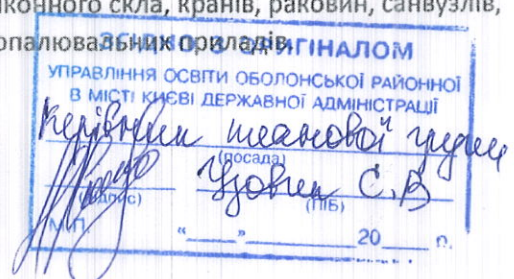 конного скла, кранів, раковин, санвузлів,
опалювальних приладів.
ЗГІДНО З ОРИГІНАЛОМ
УПРАВЛІННЯ ОСВІТИ ОБОЛОНСЬКОЇ РАЙОННОЇ
В МІСТІ КИЄВІ ДЕРЖАВНОЇ АДМІНІСТРАЦІЇ
Керівник планової групи
(посада)
С.В
(підпис) (ПІБ)
М.П. "____"__________20____р.